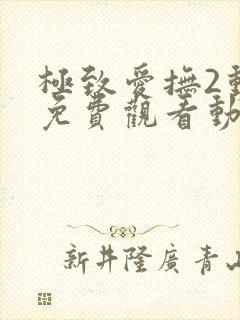 極致愛撫2動
免費觀看動
新井隆廣 青山